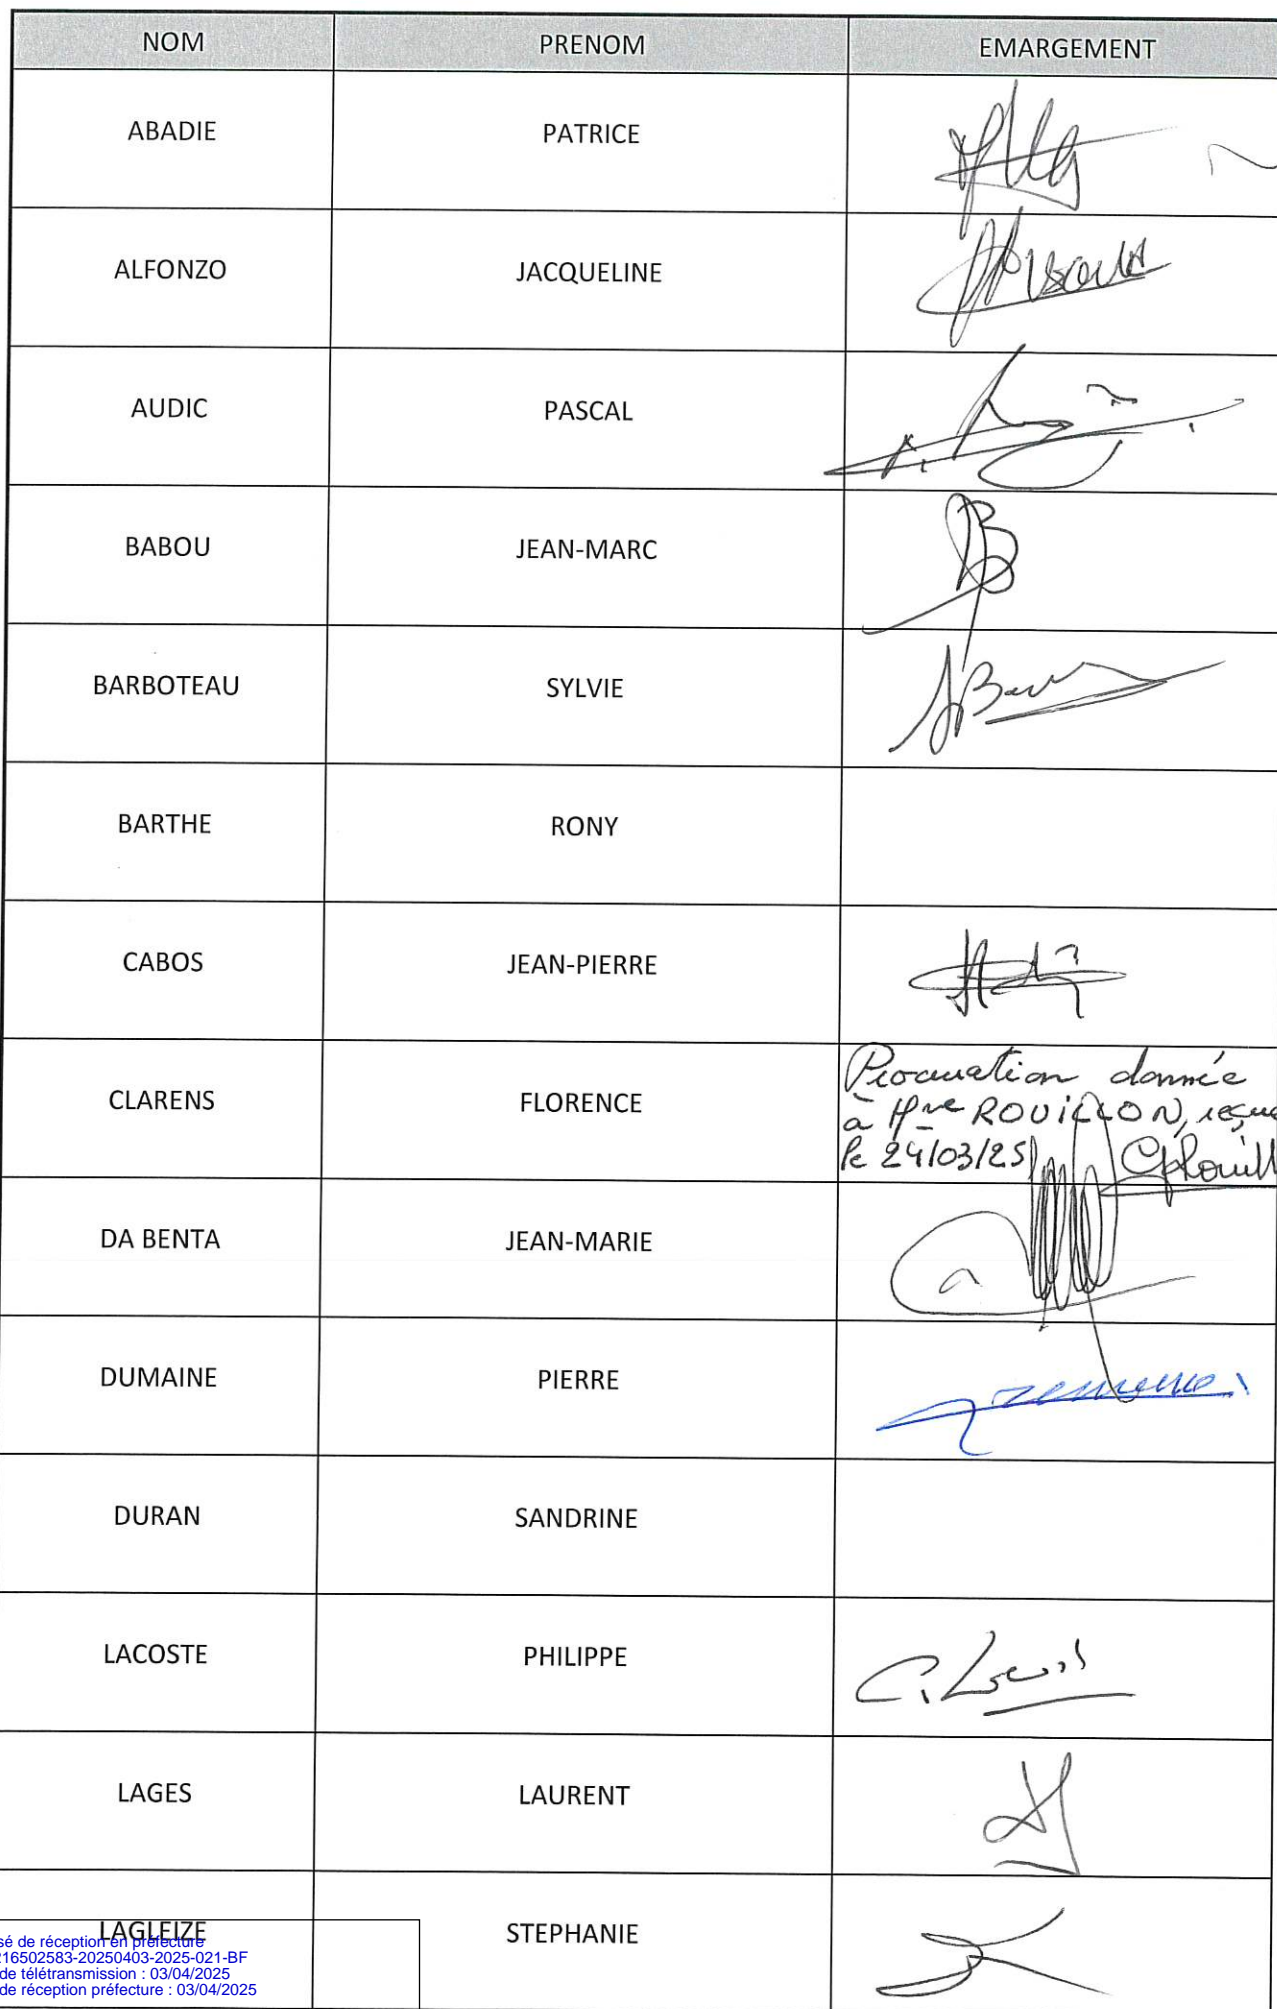 NOM PRENOM EMARGEMENT
ABADIE PATRICE
ALFONZO JACQUELINE
AUDIC PASCAL
BABOU JEAN-MARC
BARBOTEAU SYLVIE
BARTHE RONY
CABOS JEAN-PIERRE
CLARENS FLORENCE
Procuration donnée
à Mme ROUILLON, reçue
le 24/03/25
DA BENTA JEAN-MARIE
DUMAINE PIERRE
DURAN SANDRINE
LACOSTE PHILIPPE
LAGES LAURENT
LAGLEIZE STEPHANIE
sé de réception en préfecture
216502583-20250403-2025-021-BF
de télétransmission : 03/04/2025
de réception préfecture : 03/04/2025